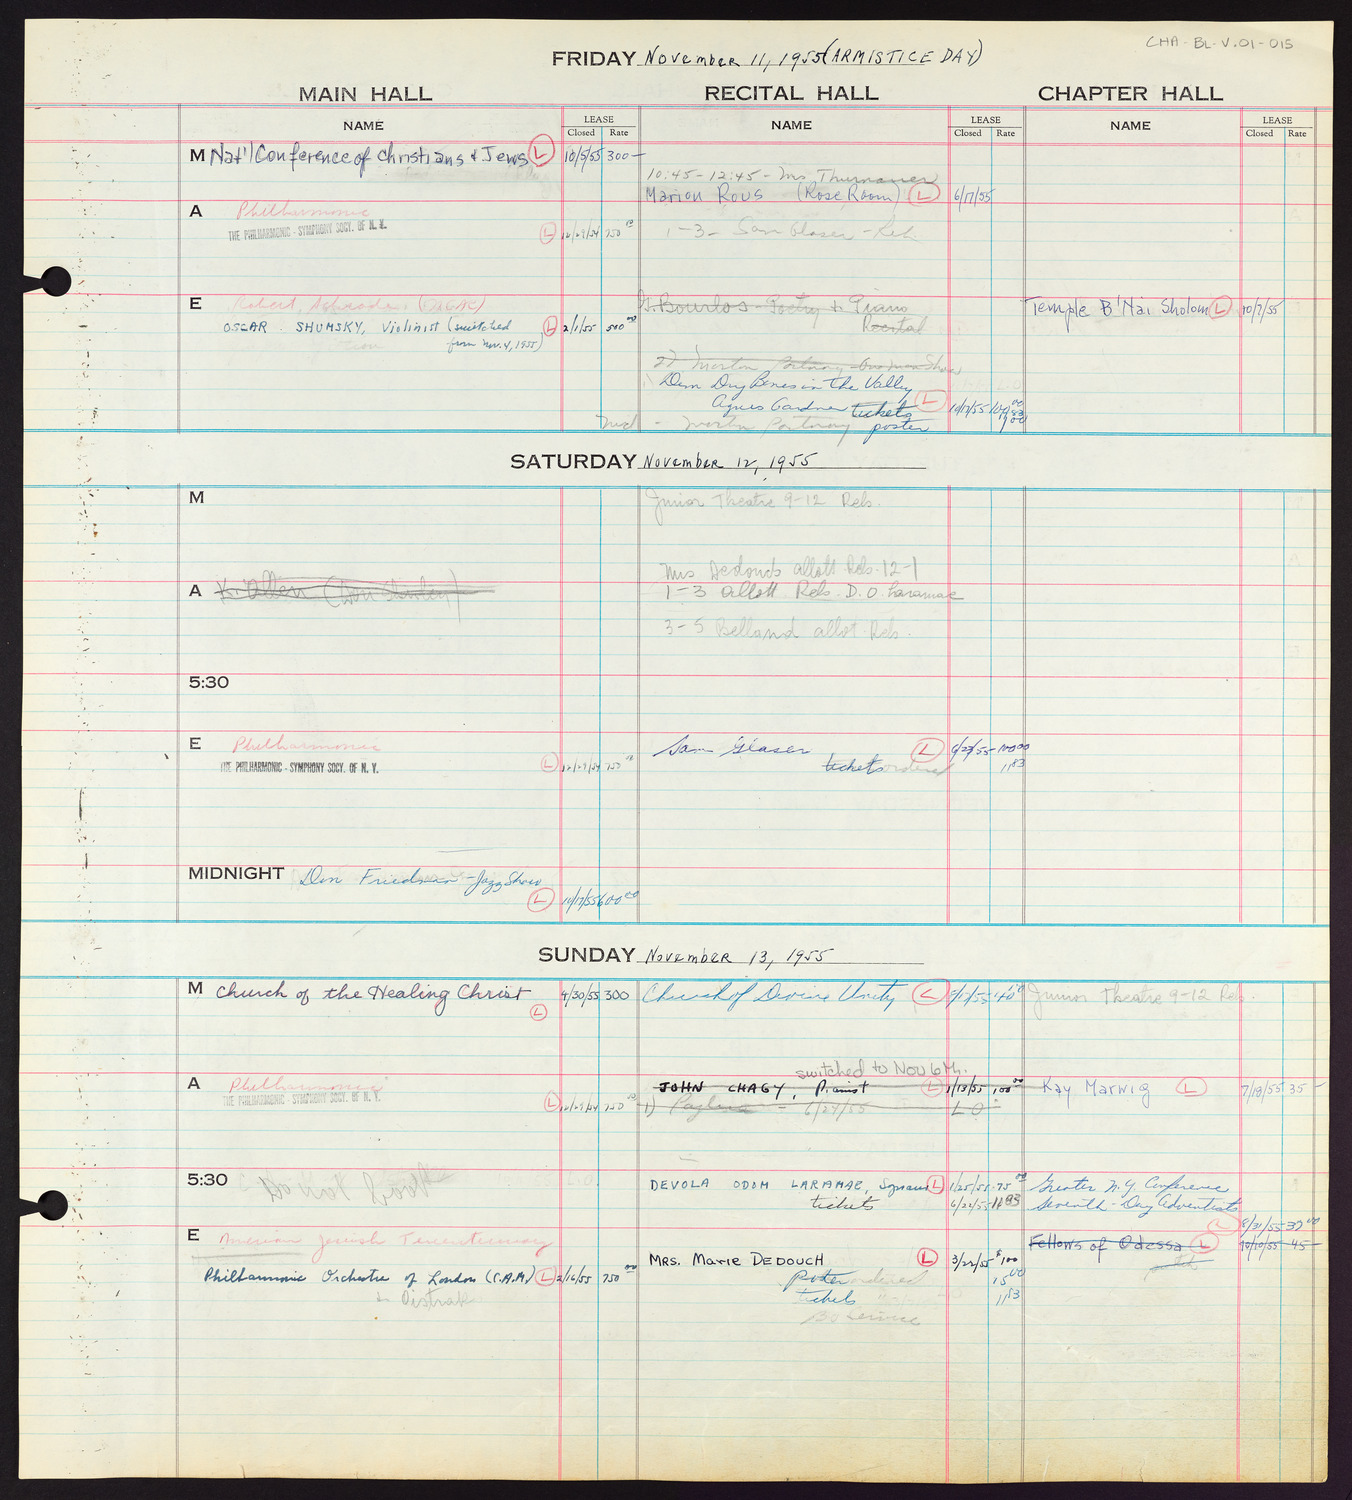 CHA-BL-V.01-015
FRIDAY November 11, 1955 (ARMISTICE DAY)
MAIN HALL RECITAL HALL CHAPTER HALL
NAME LEASE Closed Rate NAME LEASE Closed Rate NAME LEASE Closed Rate
M Nat'l Conference of Christians & Jews L 10/5/55 300—
10:45-12:45 - Mrs Thurmauer
Marion Rous (Rose Room) L 6/17/55
A Philharmonic
THE PHILHARMONIC-SYMPHONY SOCY. OF N. Y. L 12/29/54 750
1-3- Sam Glaser - Reh
E Robert Schrade (NAGAC)
OSCAR SHUMSKY, Violinist (switched L 2/1/55 500 00
from Nov. 4, 1955)
G. Bourlos - Poetry & Piano
Recital
Temple B'Nai Sholom L 10/7/55
2) Morton Portnoy - One Man Show
Dem Dry Bones in the Valley
Agnes Gardner tickets L 10/17/55
poster
SATURDAY November 12, 1955
M Junior Theatre 9-12 Reh.
Mrs Dedouch allott Reh. 12-1
A K. Allen (Don Shirley)
1-3 allott Reh. D. O. Laramae
3-5 Belland allot. Reh.
5:30
E Philharmonic
THE PHILHARMONIC-SYMPHONY SOCY. OF N. Y. L 12/29/54 750
Sam Glaser L 6/23/55 100 00
tickets ordered 11 83
MIDNIGHT Don Friedman - Jazz Show
L 10/17/55 600 00
SUNDAY November 13, 1955
M Church of the Healing Christ L 9/30/55 300
Church of Divine Unity L 5/11/55 40
Junior Theatre 9-12 Reh.
switched to Nov 6th.
A Philharmonic
THE PHILHARMONIC-SYMPHONY SOCY. OF N. Y. L 12/29/54 750
JOHN CHAGY, Pianist L 1/13/55 100 00
1) 6/24/55 L.O.
Kay Marwig L 7/18/55 35 —
5:30 Do Not Book
DEVOLA ODOM LARAMAE, Soprano L 1/25/55 75 00
tickets 6/22/55 11 83
Greater N.Y. Conference
Seventh-Day Adventists
L 8/31/55 37 00
E American Jewish Tercentenary
Philharmonic Orchestra of London (C.A.M.) L 2/16/55 750 00
& Oistrakh
Mrs. Marie DEDOUCH L 3/22/55 $100
poster ordered 15 00
tickets 11 83
BO Service
Fellows of Odessa L 10/10/55 45 —